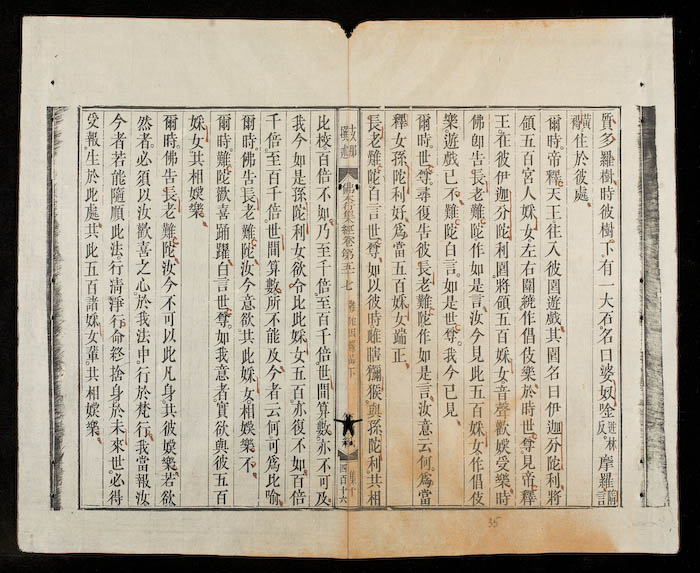 質多羅樹時彼樹下有一大石名曰婆奴唫逝林反摩羅訶
住於彼處
爾時帝釋天王往入彼園遊戲其園名曰伊迦分陀利將
領五百宮人婇女左右圍繞作倡伎樂於時世尊見帝釋
王在彼伊迦分陀利園將領五百婇女音聲歡娛受樂時
佛卽告長老難陀作如是言汝今見此五百婇女作倡伎
樂遊戲已不難陀白言如是世尊我今已見
爾時世尊尋復告彼長老難陀作如是言汝意云何爲當
釋女孫陀利好爲當五百婇女端正
長老難陀白言世尊如以彼時雌瞎獼猴與孫陀利共相
支那撰述 佛本行集經卷第五十七 難陀因緣品下
比校百倍不如乃至千倍至百千倍世間算數亦不可及
我今如是孫陀利女欲令比此婇女五百亦復不如百倍
千倍至百千倍世間算數所不能及今者云何可爲比喻
爾時佛告長老難陀汝今意欲共此婇女相娛樂不
爾時難陀歡喜踊躍白言世尊如我意者實欲與彼五百
婇女共相娛樂
爾時佛告長老難陀汝今不可以此凡身共彼娛樂若欲
然者必須以汝歡喜之心於我法中行於梵行我當報汝
今者若能隨順此法行清淨行命終捨身於未來世必得
受報生於此處共此五百諸婇女輩共相娛樂
35